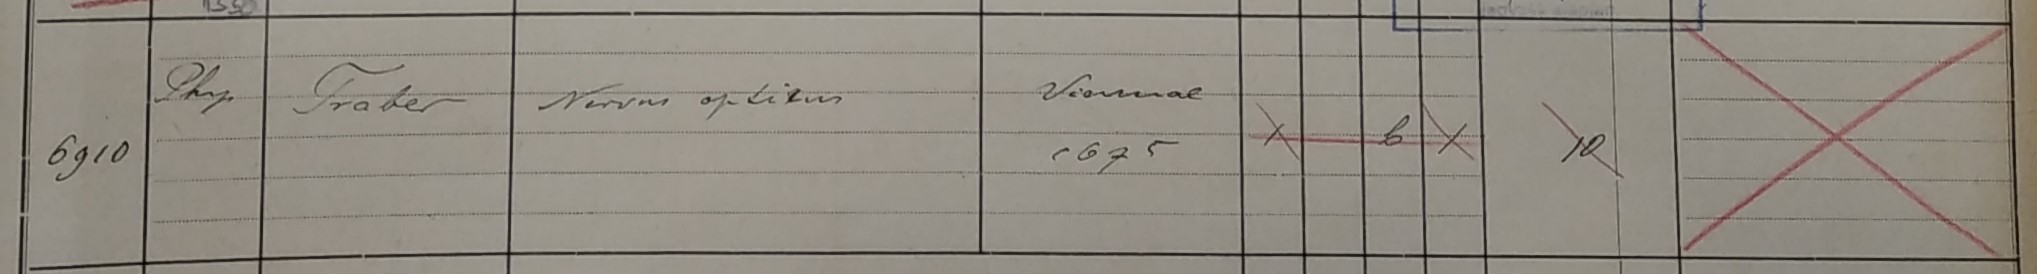 6910
Phys
Traber
Nervus opticus
Viennae
1675
X
6
X
10